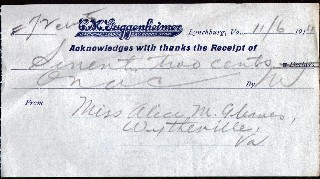 C.M. Guggenheimer
Lynchburg, Va., 11/6 19
Acknowledges with thanks the Receipt of
Seventy two cents Dollars
On By
From Miss Alice M. Gleaves,
Wytheville,
Va.